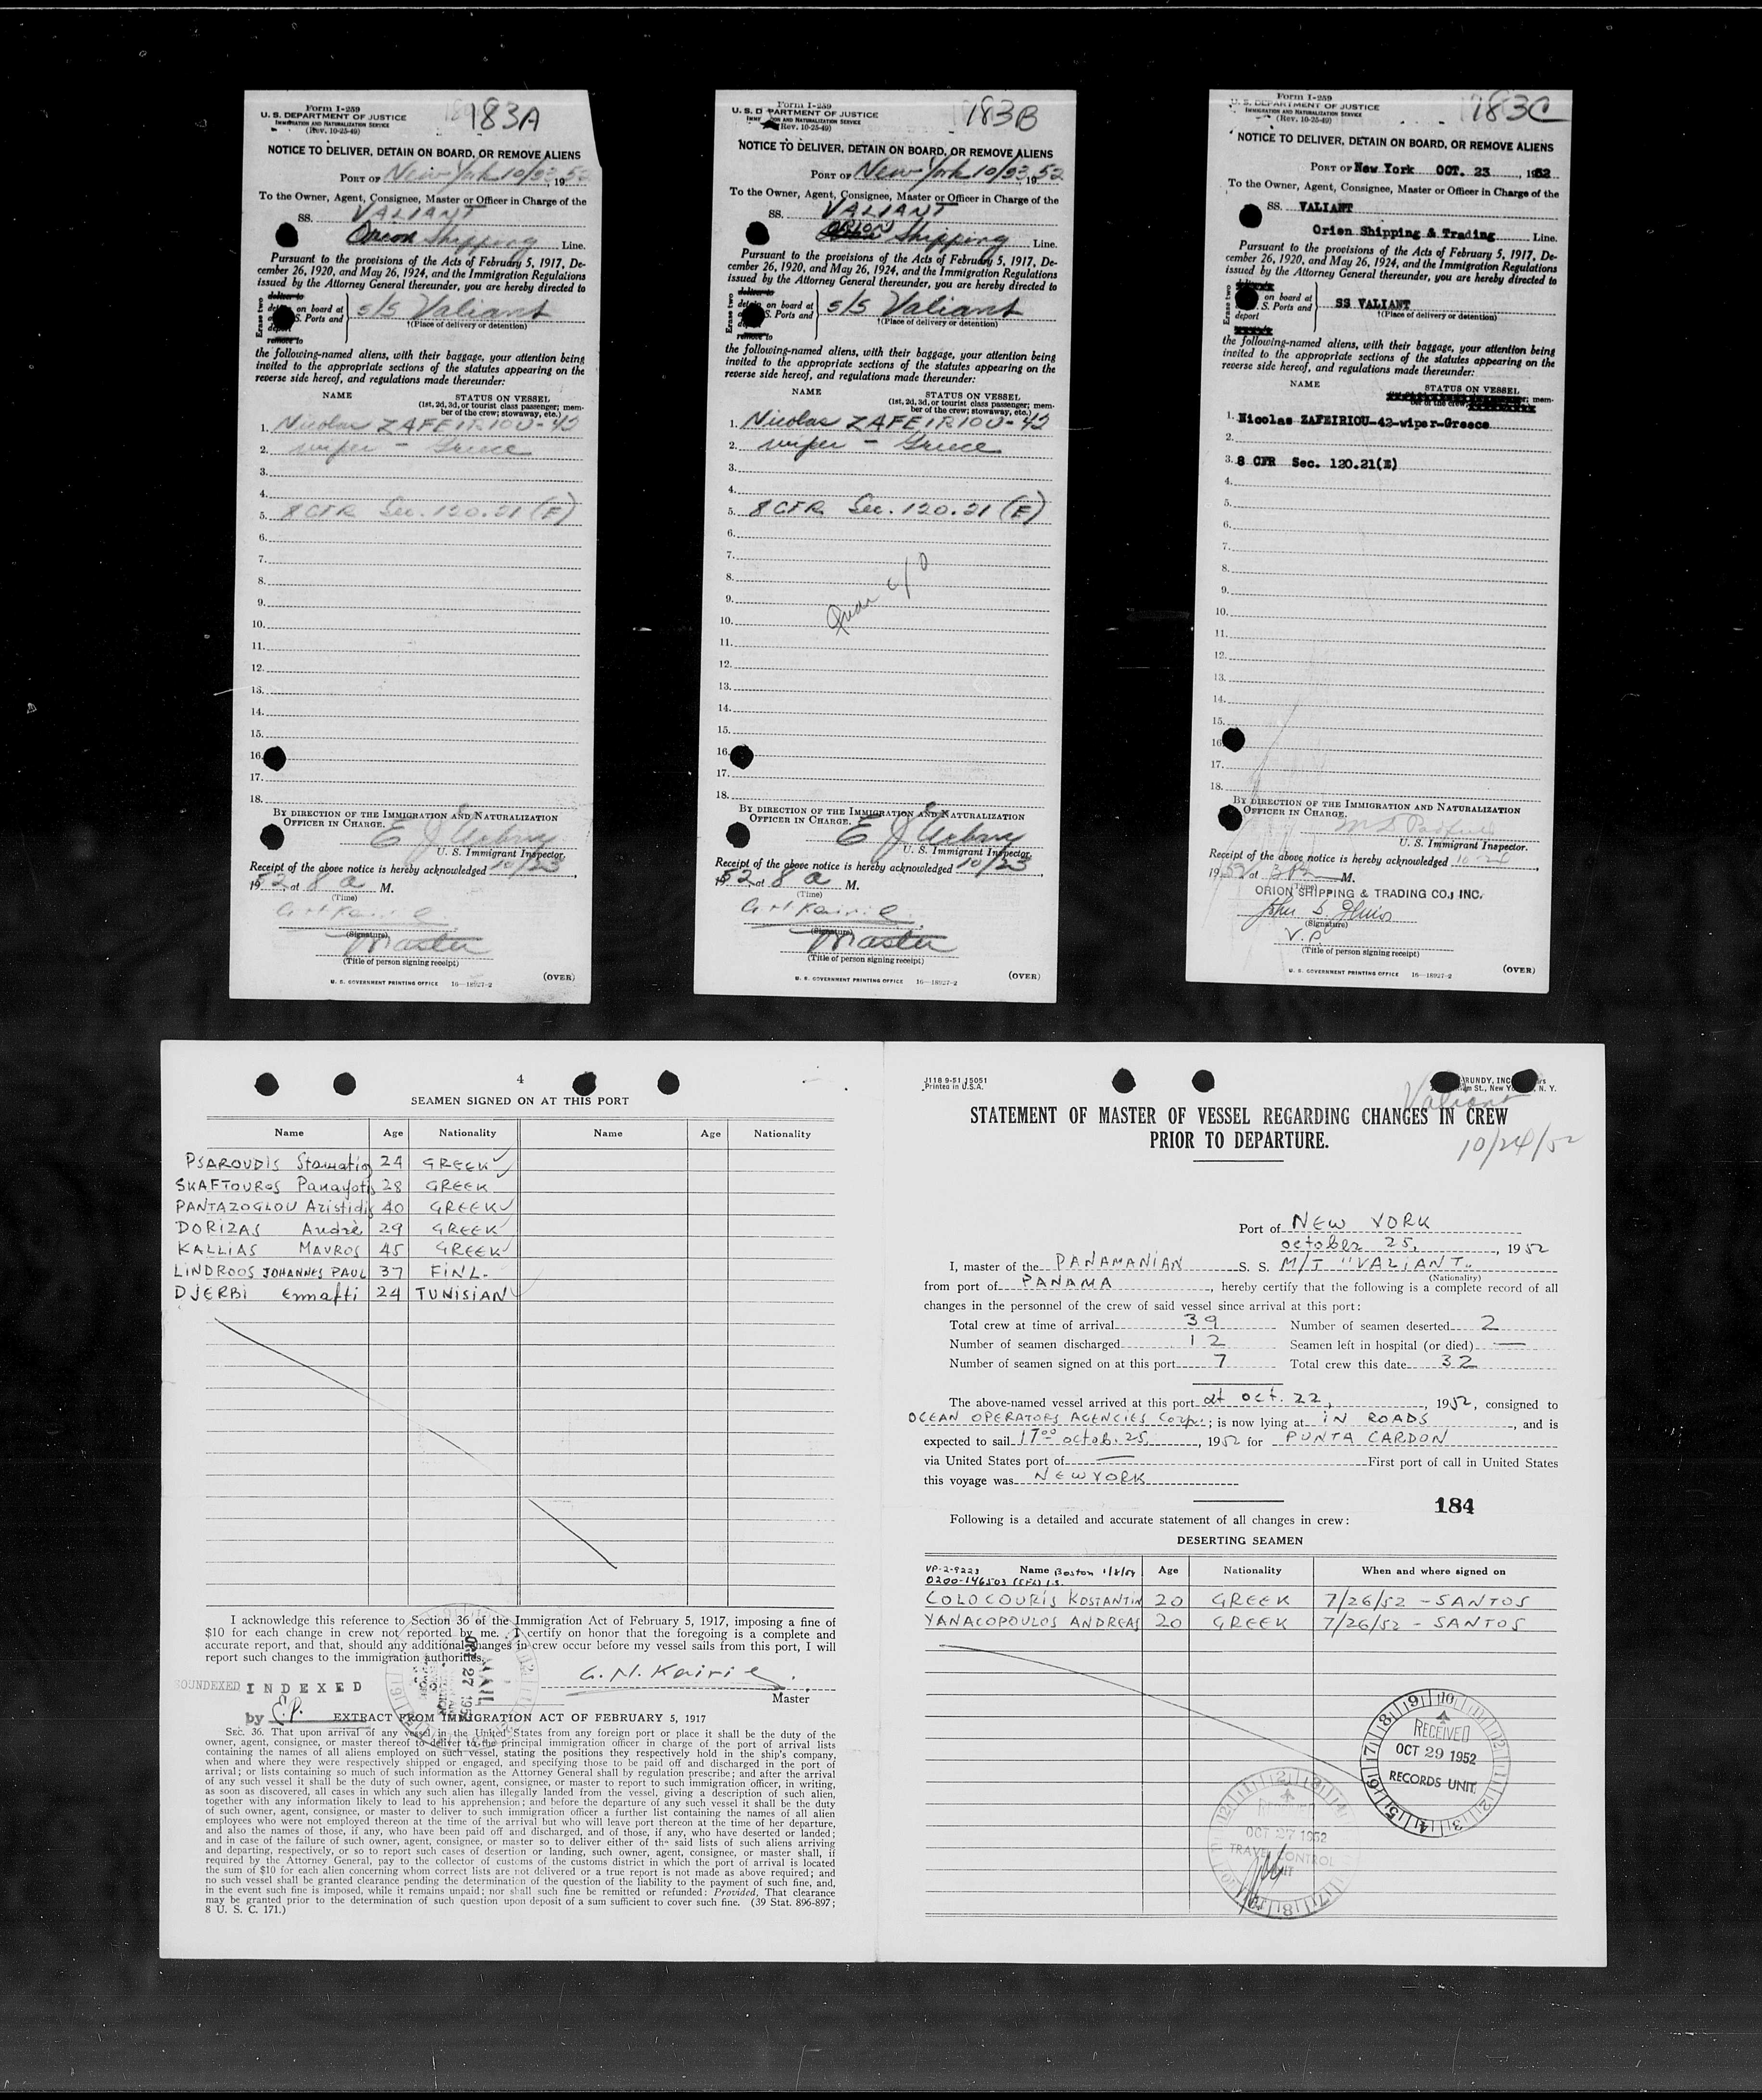 183A
Form I-259
U. S. DEPARTMENT OF JUSTICE
IMMIGRATION AND NATURALIZATION SERVICE
(Rev. 10-25-49)
NOTICE TO DELIVER, DETAIN ON BOARD, OR REMOVE ALIENS
PORT OF New York 10/23, 1952
To the Owner, Agent, Consignee, Master or Officer in Charge of the
SS. VALIANT
Orion Shipping Line.
Pursuant to the provisions of the Acts of February 5, 1917, De-
cember 26, 1920, and May 26, 1924, and the Immigration Regulations
issued by the Attorney General thereunder, you are hereby directed to
Erase two
deliver to
on board at
S. Ports and
remove to
s/s Valiant
†(Place of delivery or detention)
the following-named aliens, with their baggage, your attention being
invited to the appropriate sections of the statutes appearing on the
reverse side hereof, and regulations made thereunder:
NAME STATUS ON VESSEL
(1st, 2d, 3d, or tourist class passenger; mem-
ber of the crew; stowaway, etc.)
1. Nicolas ZAFEIRIOU-42
2. wiper - Greece
3.
4.
5. 8 CFR Sec. 120.21 (E)
6.
7.
8.
9.
10.
11.
12.
13.
14.
15.
16.
17.
18.
BY DIRECTION OF THE IMMIGRATION AND NATURALIZATION
OFFICER IN CHARGE.
U. S. Immigrant Inspector.
Receipt of the above notice is hereby acknowledged 10/23,
1952 at 8 a M.
(Time)
G. N. Kairis
(Signature)
Master
(Title of person signing receipt)
(OVER)
U. S. GOVERNMENT PRINTING OFFICE 16—18927-2
183B
Form I-259
U. S. D PARTMENT OF JUSTICE
IMM ION AND NATURALIZATION SERVICE
(Rev. 10-25-49)
NOTICE TO DELIVER, DETAIN ON BOARD, OR REMOVE ALIENS
PORT OF New York 10/23, 1952
To the Owner, Agent, Consignee, Master or Officer in Charge of the
SS. VALIANT
ORION Shipping Line.
Pursuant to the provisions of the Acts of February 5, 1917, De-
cember 26, 1920, and May 26, 1924, and the Immigration Regulations
issued by the Attorney General thereunder, you are hereby directed to
Erase two
deliver to
on board at
S. Ports and
remove to
s/s Valiant
†(Place of delivery or detention)
the following-named aliens, with their baggage, your attention being
invited to the appropriate sections of the statutes appearing on the
reverse side hereof, and regulations made thereunder:
NAME STATUS ON VESSEL
(1st, 2d, 3d, or tourist class passenger; mem-
ber of the crew; stowaway, etc.)
1. Nicolas ZAFEIRIOU-42
2. wiper - Greece
3.
4.
5. 8 CFR Sec. 120.21 (E)
6.
7.
8.
9.
10.
11.
12.
13.
14.
15.
16.
17.
18.
BY DIRECTION OF THE IMMIGRATION AND NATURALIZATION
OFFICER IN CHARGE.
U. S. Immigrant Inspector.
Receipt of the above notice is hereby acknowledged 10/23,
1952 at 8 a M.
(Time)
G. N. Kairis
(Signature)
Master
(Title of person signing receipt)
(OVER)
U. S. GOVERNMENT PRINTING OFFICE 16—18927-2
183C
Form I-259
U. S. DEPARTMENT OF JUSTICE
IMMIGRATION AND NATURALIZATION SERVICE
(Rev. 10-25-49)
NOTICE TO DELIVER, DETAIN ON BOARD, OR REMOVE ALIENS
PORT OF New York OCT. 23, 1952
To the Owner, Agent, Consignee, Master or Officer in Charge of the
SS. VALIANT
Orien Shipping & Trading Line.
Pursuant to the provisions of the Acts of February 5, 1917, De-
cember 26, 1920, and May 26, 1924, and the Immigration Regulations
issued by the Attorney General thereunder, you are hereby directed to
Erase two
on board at
S. Ports and
deport
SS VALIANT
†(Place of delivery or detention)
the following-named aliens, with their baggage, your attention being
invited to the appropriate sections of the statutes appearing on the
reverse side hereof, and regulations made thereunder:
NAME STATUS ON VESSEL
mem-
ber of the crew;
1. Nicolas ZAFEIRIOU-42-wiper-Greece
2.
3. 8 CFR Sec. 120.21(E)
4.
5.
6.
7.
8.
9.
10.
11.
12.
13.
14.
15.
16.
17.
18.
BY DIRECTION OF THE IMMIGRATION AND NATURALIZATION
OFFICER IN CHARGE.
U. S. Immigrant Inspector.
Receipt of the above notice is hereby acknowledged 10-24,
1952 at M.
(Time)
ORION SHIPPING & TRADING CO., INC.
(Signature)
V.P.
(Title of person signing receipt)
(OVER)
U. S. GOVERNMENT PRINTING OFFICE 16—18927-2
4
SEAMEN SIGNED ON AT THIS PORT
Name Age Nationality Name Age Nationality
PSAROUDIS Stamatios 24 GREEK
SKAFTOUROS Panayotis 28 GREEK
PANTAZOGLOU Aristidis 40 GREEK
DORIZAS Andrè 29 GREEK
KALLIAS MAVROS 45 GREEK
LINDROOS JOHANNES PAUL 37 FINL.
DJERBI Ennafti 24 TUNISIAN
I acknowledge this reference to Section 36 of the Immigration Act of February 5, 1917, imposing a fine of
$10 for each change in crew not reported by me. I certify on honor that the foregoing is a complete and
accurate report, and that, should any additional changes in crew occur before my vessel sails from this port, I will
report such changes to the immigration authorities.
MAIL
OCT 27 1952
G. N. Kairis.
Master
SOUNDEXED INDEXED
by E.P.
EXTRACT FROM IMMIGRATION ACT OF FEBRUARY 5, 1917
SEC. 36. That upon arrival of any vessel in the United States from any foreign port or place it shall be the duty of the
owner, agent, consignee, or master thereof to deliver to the principal immigration officer in charge of the port of arrival lists
containing the names of all aliens employed on such vessel, stating the positions they respectively hold in the ship's company,
when and where they were respectively shipped or engaged, and specifying those to be paid off and discharged in the port of
arrival; or lists containing so much of such information as the Attorney General shall by regulation prescribe; and after the arrival
of any such vessel it shall be the duty of such owner, agent, consignee, or master to report to such immigration officer, in writing,
as soon as discovered, all cases in which any such alien has illegally landed from the vessel, giving a description of such alien,
together with any information likely to lead to his apprehension; and before the departure of any such vessel it shall be the duty
of such owner, agent, consignee, or master to deliver to such immigration officer a further list containing the names of all alien
employees who were not employed thereon at the time of the arrival but who will leave port thereon at the time of her departure,
and also the names of those, if any, who have been paid off and discharged, and of those, if any, who have deserted or landed;
and in case of the failure of such owner, agent, consignee, or master so to deliver either of the said lists of such aliens arriving
and departing, respectively, or so to report such cases of desertion or landing, such owner, agent, consignee, or master shall, if
required by the Attorney General, pay to the collector of customs of the customs district in which the port of arrival is located
the sum of $10 for each alien concerning whom correct lists are not delivered or a true report is not made as above required; and
no such vessel shall be granted clearance pending the determination of the question of the liability to the payment of such fine, and,
in the event such fine is imposed, while it remains unpaid; nor shall such fine be remitted or refunded: Provided, That clearance
may be granted prior to the determination of such question upon deposit of a sum sufficient to cover such fine. (39 Stat. 896-897;
8 U. S. C. 171.)
J118 9-51 15051
Printed in U.S.A.
RUNDY, INC
m St., New Y N. Y.
Valiant
10/24/52
STATEMENT OF MASTER OF VESSEL REGARDING CHANGES IN CREW
PRIOR TO DEPARTURE.
Port of NEW YORK
october 25, 1952
I, master of the PANAMANIAN S. S. M/T "VALIANT"
(Nationality)
from port of PANAMA, hereby certify that the following is a complete record of all
changes in the personnel of the crew of said vessel since arrival at this port:
Total crew at time of arrival 39 Number of seamen deserted 2
Number of seamen discharged 12 Seamen left in hospital (or died) —
Number of seamen signed on at this port 7 Total crew this date 32
The above-named vessel arrived at this port at oct. 22, 1952, consigned to
OCEAN OPERATORS AGENCIES Corp.; is now lying at IN ROADS, and is
expected to sail 17⁰⁰ octob. 25, 1952 for PUNTA CARDON
via United States port of — First port of call in United States
this voyage was NEW YORK
184
Following is a detailed and accurate statement of all changes in crew:
DESERTING SEAMEN
VP-2-9223 Name Boston 1/8/54 Age Nationality When and where signed on
0200-146503
COLOCOURIS KOSTANTIN 20 GREEK 7/26/52 - SANTOS
YANACOPOULOS ANDREAS 20 GREEK 7/26/52 - SANTOS
RECEIVED
OCT 29 1952
RECORDS UNIT.
OCT 27 1952
TRAVEL CONTROL
UNIT